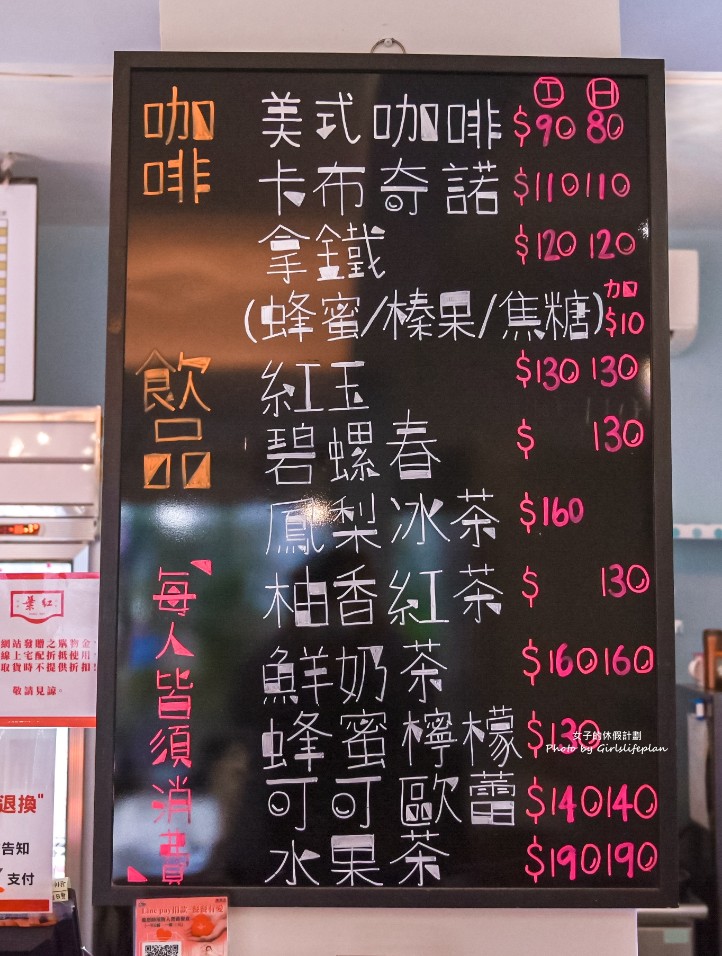 咖啡
工 日
美式咖啡 $90 80
卡布奇諾 $110 110
拿鐵 $120 120
(蜂蜜/榛果/焦糖) 加$10
飲品
紅玉 $130 130
碧螺春 $ 130
鳳梨冰茶 $160
柚香紅茶 $ 130
鮮奶茶 $160 160
蜂蜜檸檬 $130
可可歐蕾 $140 140
水果茶 $190 190
每人皆須消費
女子的休假計劃
Photo by Girlslifeplan
葉紅
網站發贈之購物金、
線上宅配折抵使用,
取貨時不提供折扣!
敬請見諒。
退換"
告知
支付